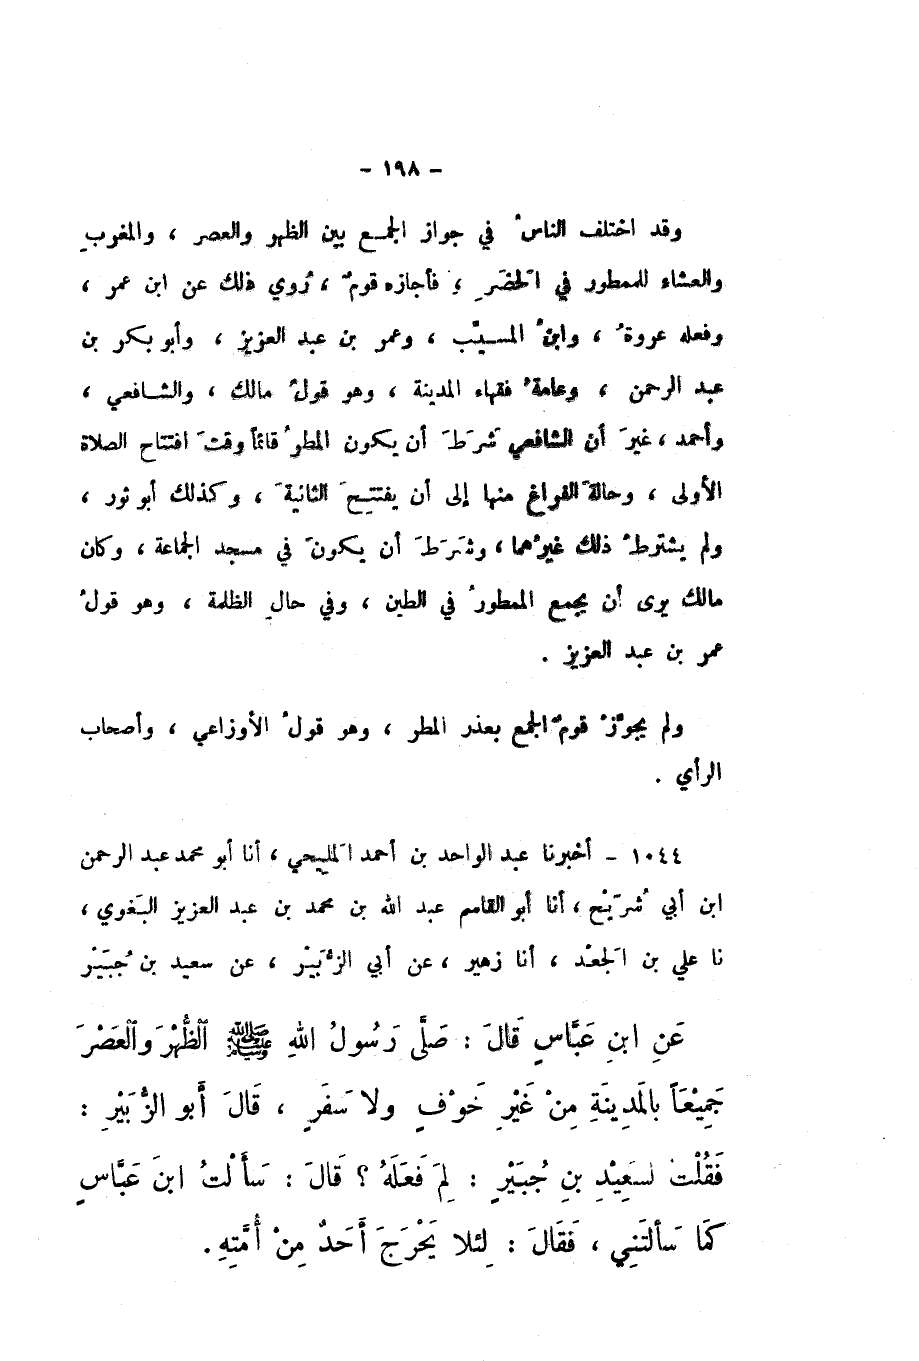 - ١٩٨ -
وقد اختلف الناسُ في جواز الجمع بين الظهر والعصر ، والمغربِ
والعشاء للممطور في الحَضَرِ ، فأجازه قومٌ ، رُوي ذلك عن ابن عمر ،
وفعله عروةُ ، وابنُ المسيَّب ، وعمر بن عبد العزيز ، وأبو بكر بن
عبد الرحمن ، وعامةُ فقهاء المدينة ، وهو قولُ مالك ، والشافعي ،
وأحمد ، غيرَ أن الشافعي شَرَطَ أن يكون المطرُ قائماً وقتَ افتتاح الصلاة
الأولى ، وحالةَ الفراغ منها إلى أن يفتتِحَ الثانيةَ ، وكذلك أبو ثور ،
ولم يشترطْ ذلك غيرُهما ، وشَرَطَ أن يكونَ في مسجد الجماعة ، وكان
مالك يرى أن يجمع الممطورُ في الطين ، وفي حالِ الظلمة ، وهو قولُ
عمر بن عبد العزيز .
ولم يجوِّزْ قومٌ الجمع بعذر المطر ، وهو قولُ الأوزاعي ، وأصحاب
الرأي .
١٠٤٤ - أخبرنا عبد الواحد بن أحمد المَليحي ، أنا أبو محمد عبد الرحمن
ابن أبي شُرَيْح ، أنا أبو القاسم عبد الله بن محمد بن عبد العزيز البَغوي ،
نا علي بن الجَعْد ، أنا زهير ، عن أبي الزُّبَيْر ، عن سعيد بن جُبَيْر
عَنِ ابنِ عَبَّاسٍ قَالَ : صَلَّى رَسُولُ اللهِ ﷺ ٱلظُّهْرَ وٱلعَصْرَ
جَمِيْعَاً بالمَدِينَةِ مِنْ غَيْرِ خَوْفٍ ولا سَفَرٍ ، قَالَ أَبو الزُّبَيْرِ :
فَقُلْتُ لسَعِيْدِ بنِ جُبَيْرٍ : لِمَ فَعَلَهُ ؟ قَالَ : سَأَلْتُ ابنَ عَبَّاسٍ
كَمَا سَأَلتَنِي ، فَقَالَ : لِئلا يَحْرَجَ أَحَدٌ مِنْ أُمَّتِهِ .